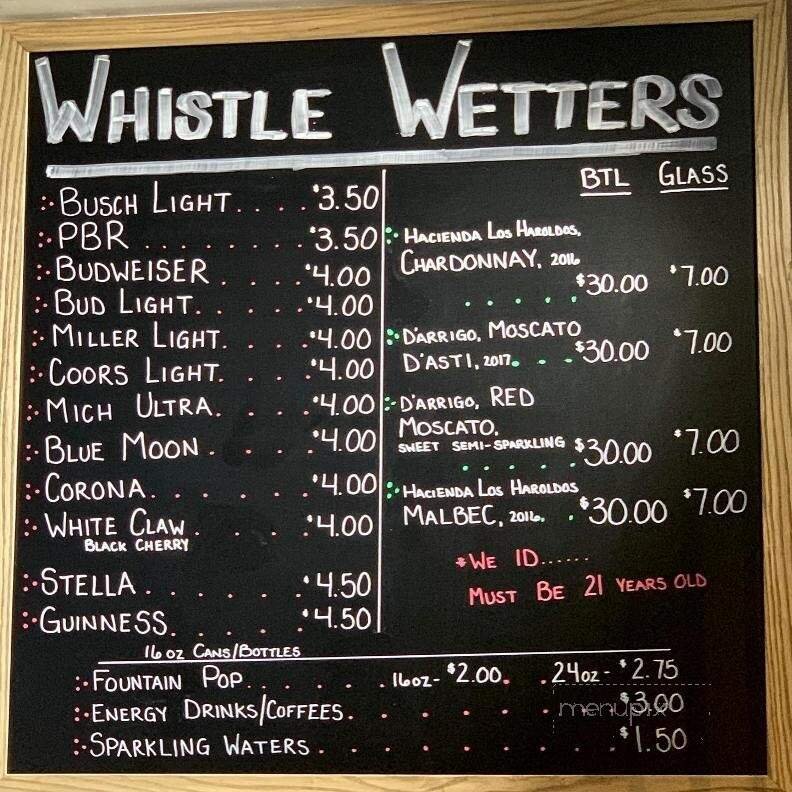 WHISTLE WETTERS
BUSCH LIGHT.....$3.50
PBR.......$3.50
BUDWEISER....$4.00
BUD LIGHT.....$4.00
MILLER LIGHT....$4.00
COORS LIGHT....$4.00
MICH ULTRA....$4.00
BLUE MOON....$4.00
CORONA......$4.00
WHITE CLAW....$4.00
BLACK CHERRY
STELLA......$4.50
GUINNESS.....$4.50
16 OZ CANS/BOTTLES
BTL GLASS
HACIENDA LOS HAROLDOS,
CHARDONNAY, 2016
.....$30.00 $7.00
D'ARRIGO, MOSCATO
D'ASTI, 2017...$30.00 $7.00
D'ARRIGO, RED
MOSCATO,
SWEET SEMI-SPARKLING
.....$30.00 $7.00
HACIENDA LOS HAROLDOS
MALBEC, 2016. .$30.00 $7.00
*WE ID......
MUST BE 21 YEARS OLD
FOUNTAIN POP.....16oz-$2.00..24oz-$2.75
ENERGY DRINKS/COFFEES.......$3.00
menupix
SPARKLING WATERS.........$1.50